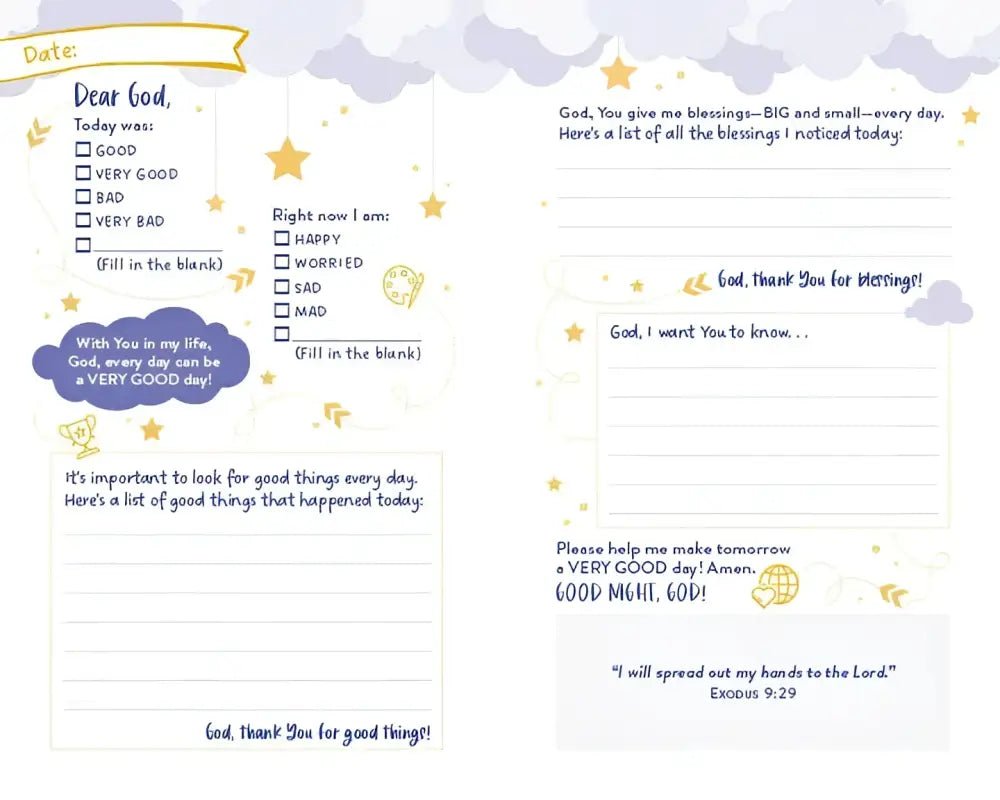 Date:
Dear God,
Today was:
GOOD
VERY GOOD
BAD
VERY BAD
(Fill in the blank)
Right now I am:
HAPPY
WORRIED
SAD
MAD
(Fill in the blank)
With You in my life,
God, every day can be
a VERY GOOD day!
It's important to look for good things every day.
Here's a list of good things that happened today:
God, thank You for good things!
God, You give me blessings—BIG and small—every day.
Here's a list of all the blessings I noticed today:
God, thank You for blessings!
God, I want You to know...
Please help me make tomorrow
a VERY GOOD day! Amen.
GOOD NIGHT, GOD!
"I will spread out my hands to the Lord."
EXODUS 9:29